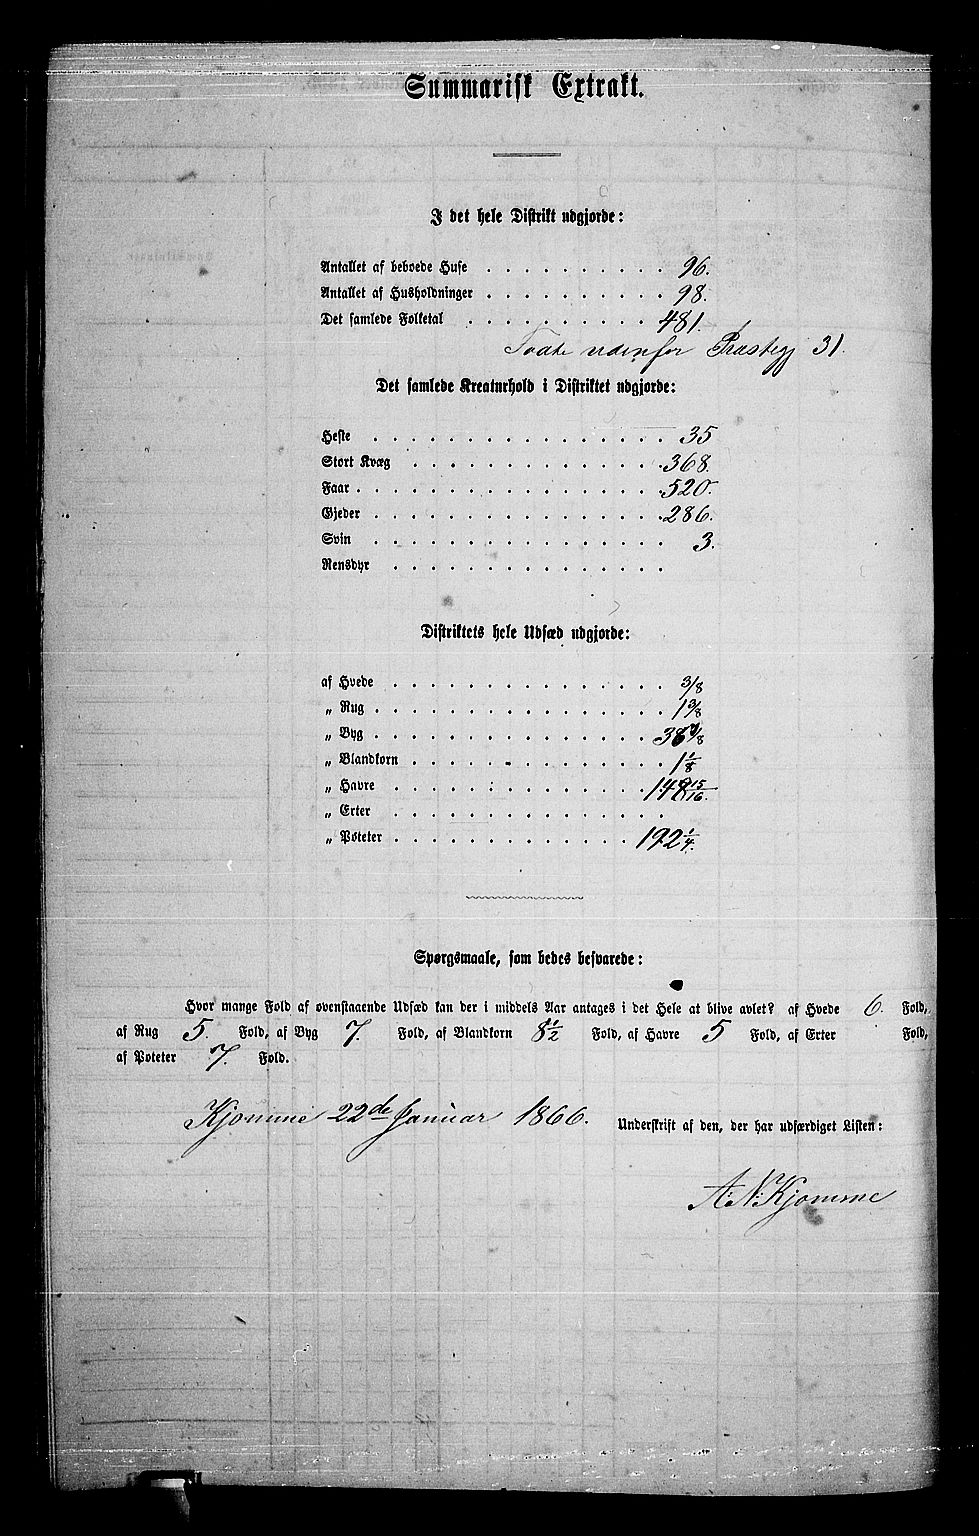 Summarisk Extrakt.
I det hele Distrikt udgjorde:
Antallet af beboede Huse . . . . . . . . . . 96.
Antallet af Husholdninger . . . . . . . . . . 98.
Det samlede Folketal . . . . . . . . . . 481.
Fødte udenfor Præstegj 31.
Det samlede Kreaturhold i Distriktet udgjorde:
Heste . . . . . . . . . . . . . . . . 35
Stort Kvæg . . . . . . . . . . . . . . 368.
Faar . . . . . . . . . . . . . . . . . 520.
Gjeder . . . . . . . . . . . . . . . . 286.
Svin . . . . . . . . . . . . . . . . 3.
Rensdyr . . . . . . . . . . . . . . .
Distriktets hele Udsæd udgjorde:
af Hvede . . . . . . . . . . . . . . . 3/8
„ Rug . . . . . . . . . . . . . . . . 1 3/8
„ Byg . . . . . . . . . . . . . . . .
„ Blandkorn . . . . . . . . . . . . . . 1 1/8
„ Havre . . . . . . . . . . . . . . . 148 15/16.
„ Erter . . . . . . . . . . . . . . .
„ Poteter . . . . . . . . . . . . . 192 1/4.
Spørgsmaale, som bedes besvarede:
Hvor mange Fold af ovenstaaende Udsæd kan der i middels Aar antages i det Hele at blive avlet? af Hvede 6. Fold,
af Rug 5. Fold, af Byg 7. Fold, af Blandkorn 8 1/2 Fold, af Havre 5 Fold, af Erter Fold,
af Poteter 7. Fold.
Kjomme 22de Januar 1866.
Underskrift af den, der har udfærdiget Listen:
A: N: Kjomme